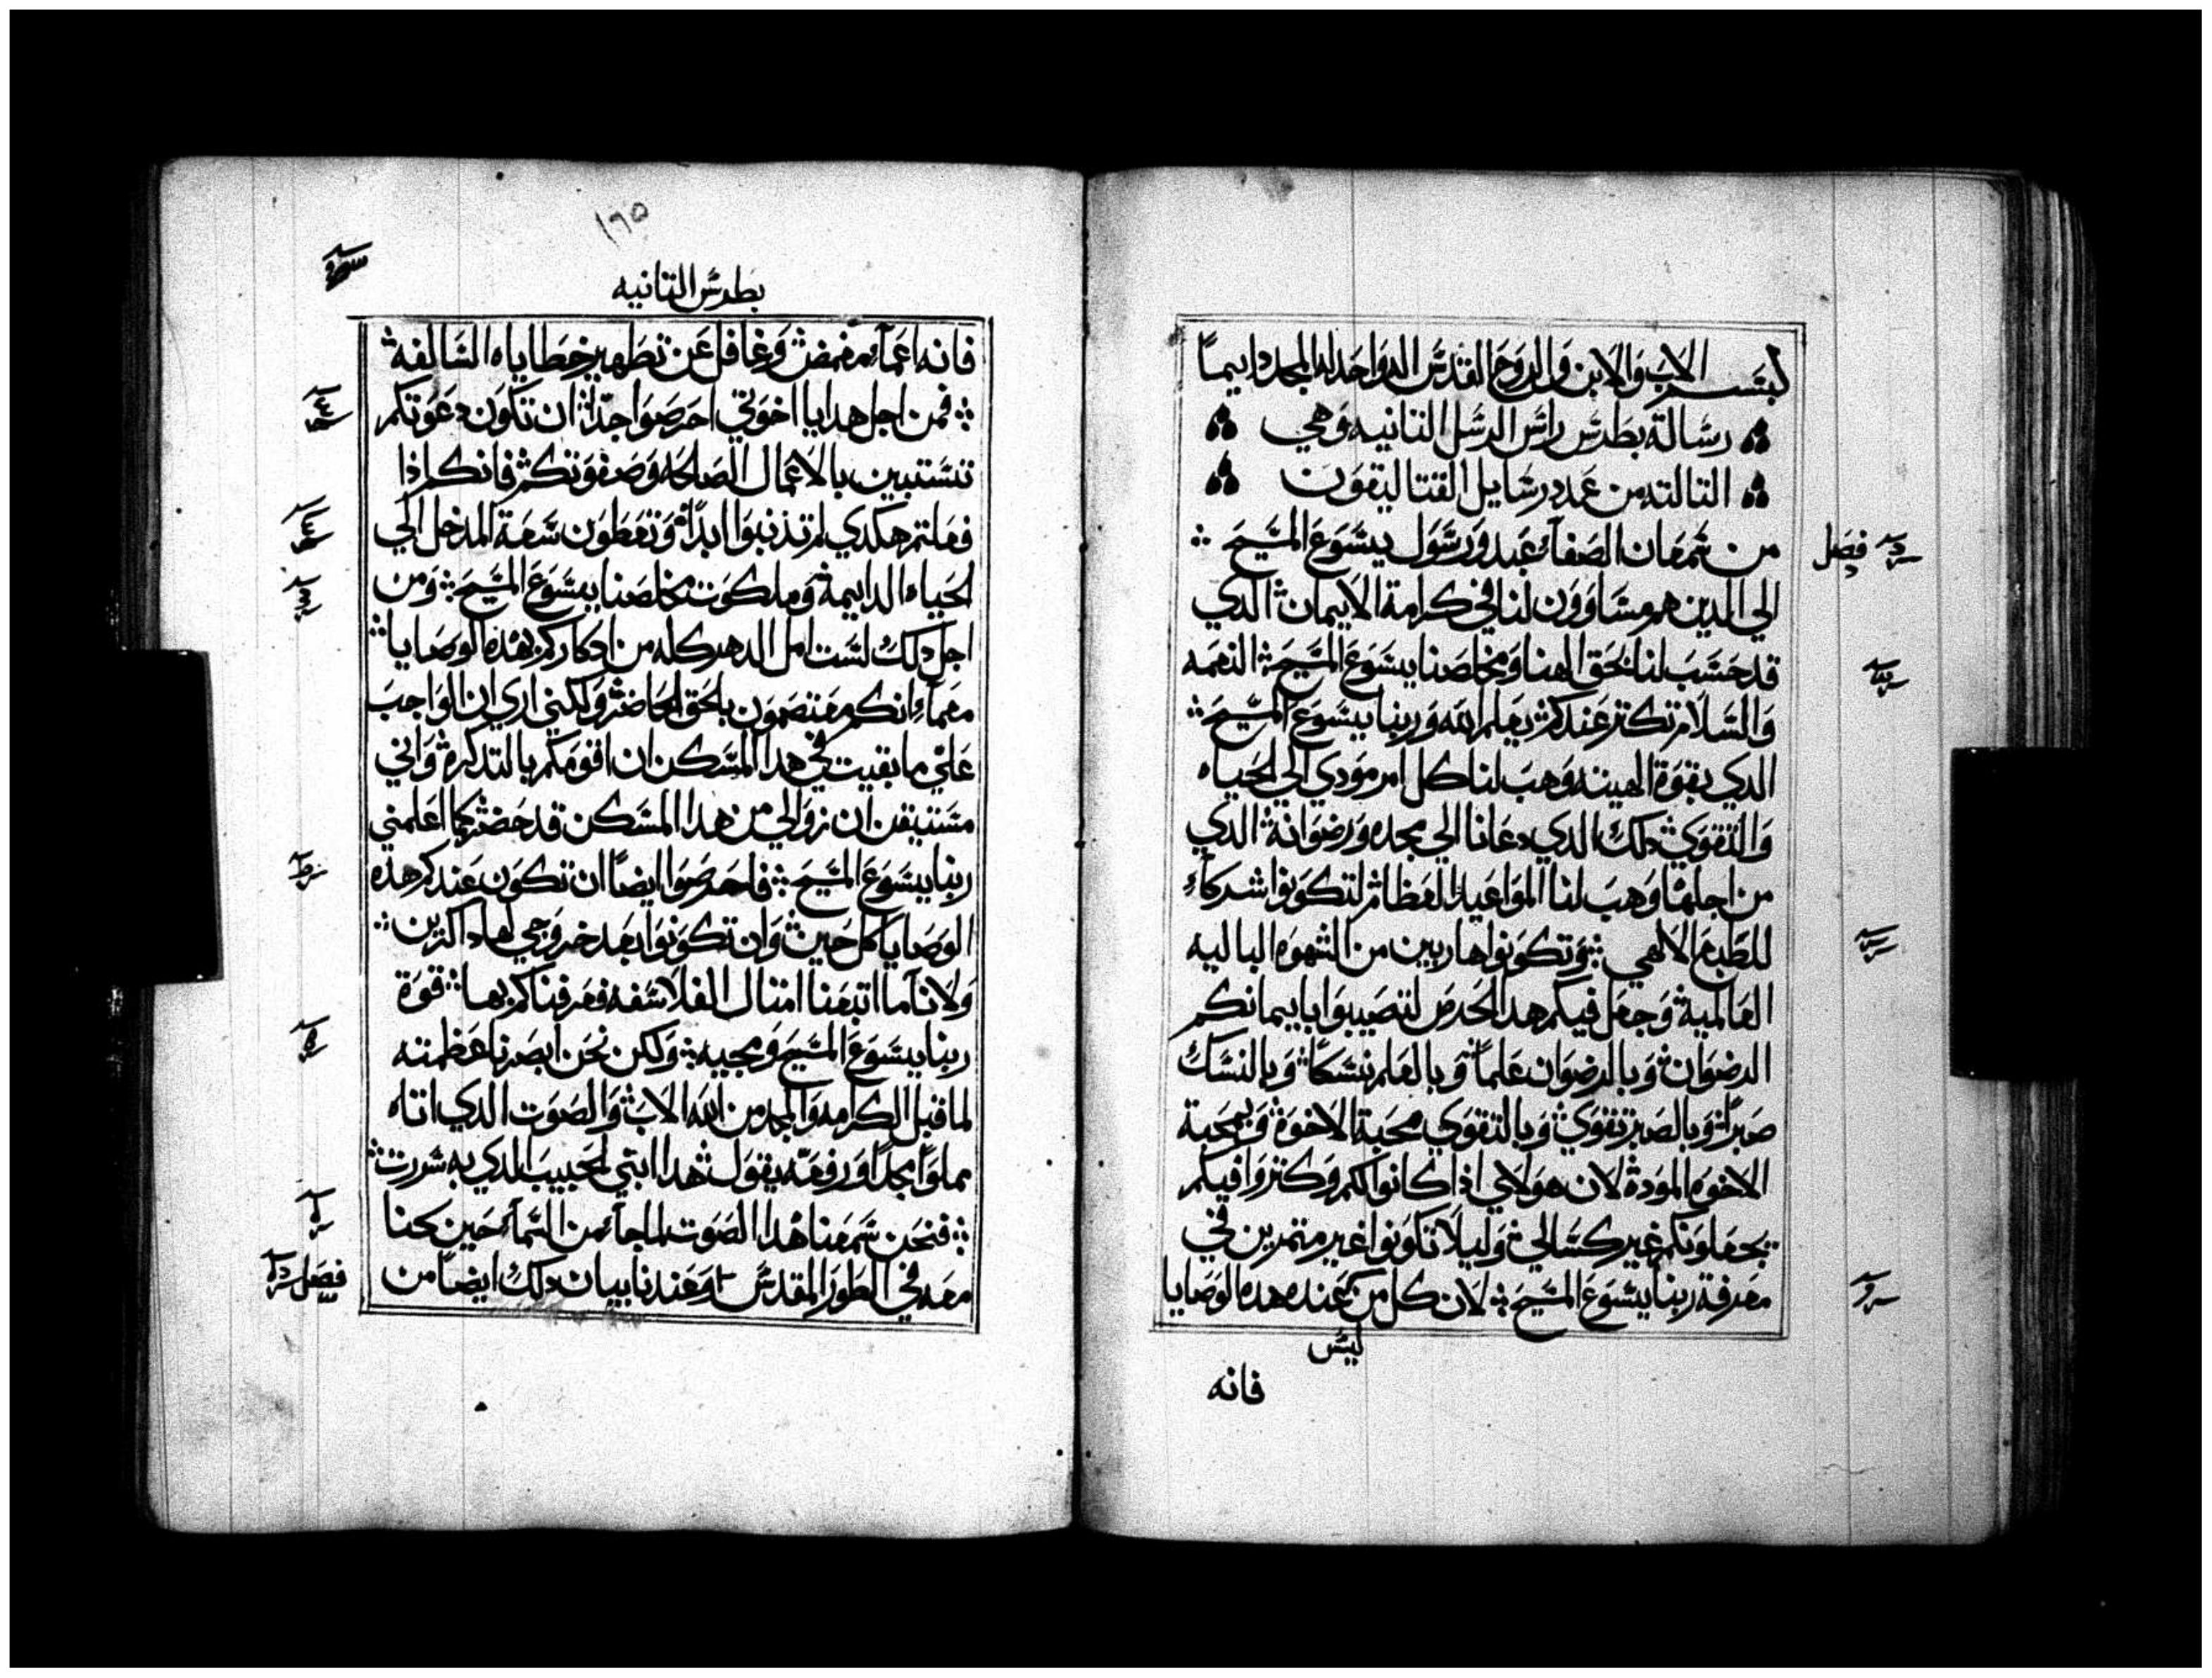 بسم الاب والابن والروح القدس اله واحد له المجد دايماً
رسالة بطرس راس الرسل التانيه وهي
التالته من عدد رسايل القتاليقون
فصل
من شمعان الصفاء عبد ورسول يسوع المسيح
الي الدين هم مساوون لنا في كرامة الايمان الدي
قد حسب لنا بحق الهنا ومخلصنا يسوع المسيح النعمه
والسلام تكتر عندكم بعلم الله وربنا يسوع المسيح
الدي بقوة الهيته وهب لنا كل امر مودي الي الحياه
والتقوي دلك الدي دعانا الي مجده ورضوانه الدي
من اجلهما وهب لنا المواعيد العظام لتكونوا شركاء
للطبع الالهي وتكونوا هاربين من الشهوه الباليه
العالمية وجعل فيكم هدا الحرص لتصيبوا بايمانكم
الرضوان وبالرضوان علماً وبالعلم نسكاً وبالنسك
صبراً وبالصبر تقوي وبالتقوي محبة الاخوة وبمحبة
الاخوه المودة لان هولاي اذا كانوا لكم وكتروا فيكم
يجعلونكم غير كسالي وليلا تكونوا غير متمرين في
معرفة ربنا يسوع المسيح لان كل من عنده هده الوصايا
ليس
فانه
١٦٥
بطرس التانيه
فانه اعماء مغمض وغافل عن تطهير خطاياه السالفه
فمن اجل هدا يا اخوتي احرصوا جداً ان تكون دعوتكم
تستبين بالاعمال الصالحه وصفوتكم فانكم اذا
فعلتم هكدي لم تذنبوا ابداً وتعطون سعة المدخل الي
الحياه الدايمة وملكوت مخلصنا يسوع المسيح ومن
اجل دلك لست امل الدهر كله من ادكاركم بهده الوصايا
معماء انكم معتصمون بالحق الحاضر ولكني اري ان الواجب
علي ما بقيت في هدا المسكن ان اقومكم بالتدكره واني
مستيقن ان زوالي من هدا المسكن قد حضر كما اعلمني
ربنا يسوع المسيح فاحرصوا ايضاً ان تكون عندكم هده
الوصايا كل حين وان تكونوا بعد خروجي لها داكرين
ولانا ما اتبعنا امتال الفلاسفه فعرفناكم بها قوة
ربنا يسوع المسيح ومجيه ولكن نحن ابصرنا عظمته
لما قبل الكرامه والمجد من الله الاب والصوت الدي اتاه
مملوا مجداً ورفعه يقول هدا ابني الحبيب الدي به سررت
فنحن سمعنا هدا الصوت لما جاء من السماء حين كنا
معه في الطور المقدس وعندنا بيان دلك ايضاً من
فصل